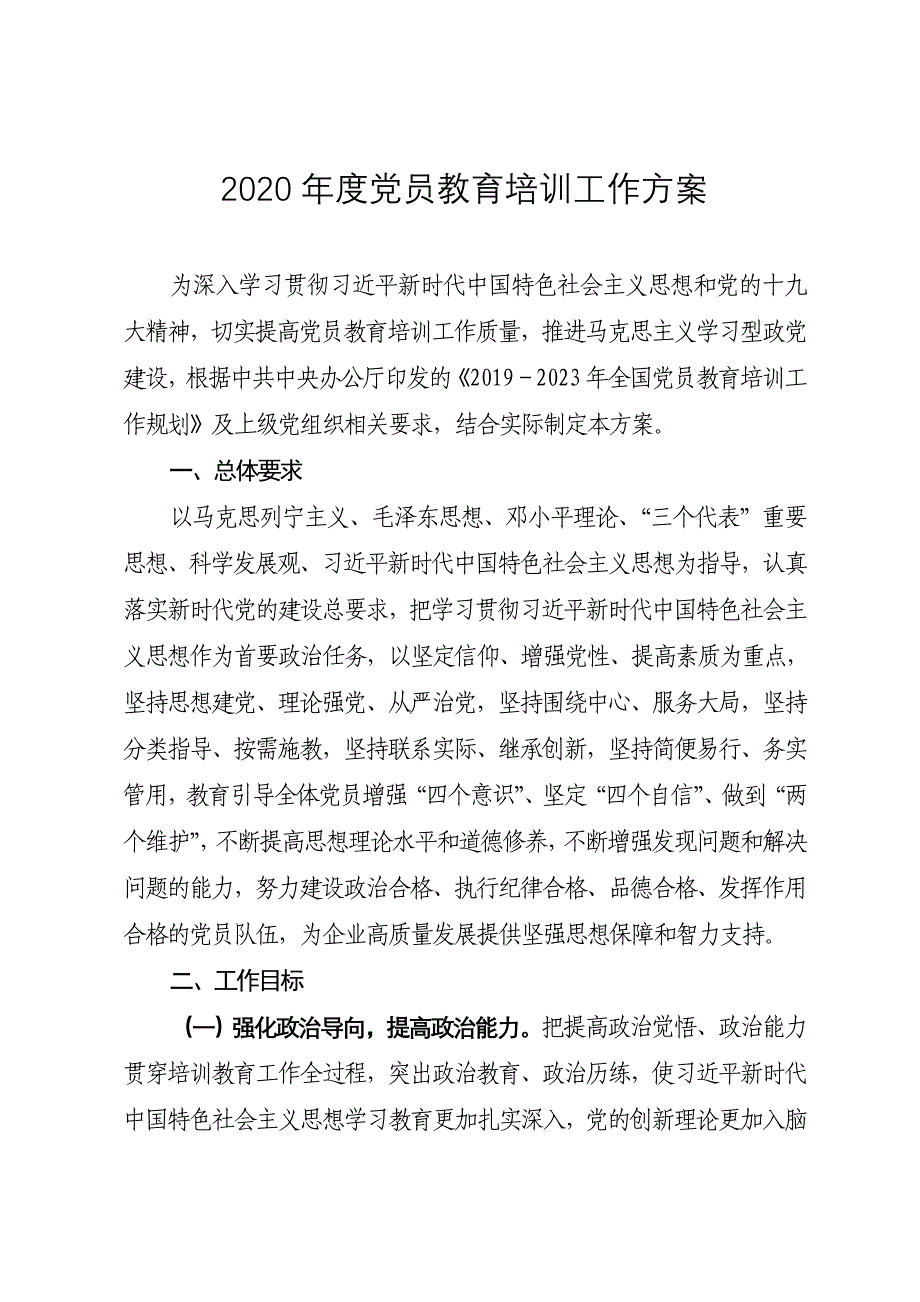 2020 年度党员教育培训工作方案
为深入学习贯彻习近平新时代中国特色社会主义思想和党的十九
大精神，切实提高党员教育培训工作质量，推进马克思主义学习型政党
建设，根据中共中央办公厅印发的《2019－2023 年全国党员教育培训工
作规划》及上级党组织相关要求，结合实际制定本方案。
一、总体要求
以马克思列宁主义、毛泽东思想、邓小平理论、“三个代表”重要
思想、科学发展观、习近平新时代中国特色社会主义思想为指导，认真
落实新时代党的建设总要求，把学习贯彻习近平新时代中国特色社会主
义思想作为首要政治任务，以坚定信仰、增强党性、提高素质为重点，
坚持思想建党、理论强党、从严治党，坚持围绕中心、服务大局，坚持
分类指导、按需施教，坚持联系实际、继承创新，坚持简便易行、务实
管用，教育引导全体党员增强“四个意识”、坚定“四个自信”、做到“两
个维护”，不断提高思想理论水平和道德修养，不断增强发现问题和解决
问题的能力，努力建设政治合格、执行纪律合格、品德合格、发挥作用
合格的党员队伍，为企业高质量发展提供坚强思想保障和智力支持。
二、工作目标
（一）强化政治导向，提高政治能力。把提高政治觉悟、政治能力
贯穿培训教育工作全过程，突出政治教育、政治历练，使习近平新时代
中国特色社会主义思想学习教育更加扎实深入，党的创新理论更加入脑